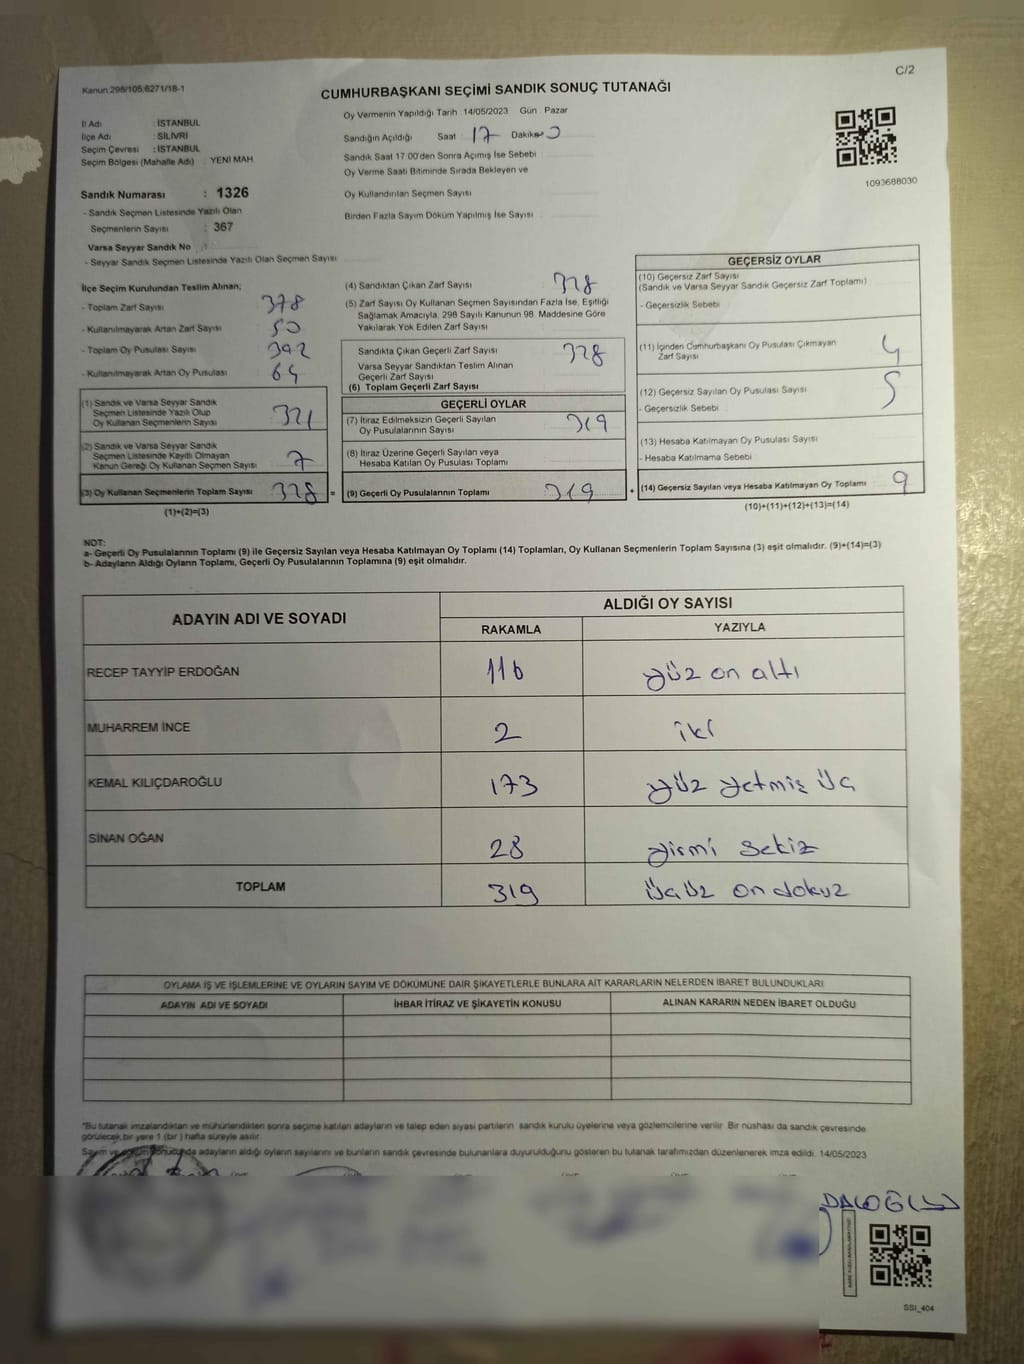 C/2
Kanun:298/105,6271/18-1
CUMHURBAŞKANI SEÇİMİ SANDIK SONUÇ TUTANAĞI
İl Adı : İSTANBUL
İlçe Adı : SİLİVRİ
Seçim Çevresi : İSTANBUL
Seçim Bölgesi (Mahalle Adı) : YENİ MAH.
Sandık Numarası : 1326
- Sandık Seçmen Listesinde Yazılı Olan
Seçmenlerin Sayısı : 367
Varsa Seyyar Sandık No :
- Seyyar Sandık Seçmen Listesinde Yazılı Olan Seçmen Sayısı
Oy Vermenin Yapıldığı Tarih 14/05/2023 Gün : Pazar
Sandığın Açıldığı Saat 17 Dakika
Sandık Saat 17.00'den Sonra Açımış İse Sebebi
Oy Verme Saati Bitiminde Sırada Bekleyen ve
Oy Kullandırılan Seçmen Sayısı
Birden Fazla Sayım Döküm Yapılmış İse Sayısı
1093688030
İlçe Seçim Kurulundan Teslim Alınan;
- Toplam Zarf Sayısı 378
- Kullanılmayarak Artan Zarf Sayısı 50
- Toplam Oy Pusulası Sayısı 392
- Kullanılmayarak Artan Oy Pusulası 64
(1) Sandık ve Varsa Seyyar Sandık
Seçmen Listesinde Yazılı Olup
Oy Kullanan Seçmenlerin Sayısı 321
(2) Sandık ve Varsa Seyyar Sandık
Seçmen Listesinde Kayıtlı Olmayan
Kanun Gereği Oy Kullanan Seçmen Sayısı 7
(3) Oy Kullanan Seçmenlerin Toplam Sayısı 328 =
(1)+(2)=(3)
(4) Sandıktan Çıkan Zarf Sayısı 328
(5) Zarf Sayısı Oy Kullanan Seçmen Sayısından Fazla İse, Eşitliği
Sağlamak Amacıyla, 298 Sayılı Kanunun 98. Maddesine Göre
Yakılarak Yok Edilen Zarf Sayısı
Sandıkta Çıkan Geçerli Zarf Sayısı 328
Varsa Seyyar Sandıktan Teslim Alınan
Geçerli Zarf Sayısı
(6) Toplam Geçerli Zarf Sayısı
GEÇERLİ OYLAR
(7) İtiraz Edilmeksizin Geçerli Sayılan
Oy Pusulalarının Sayısı 319
(8) İtiraz Üzerine Geçerli Sayılan veya
Hesaba Katılan Oy Pusulası Toplamı
(9) Geçerli Oy Pusulalarının Toplamı 319 +
GEÇERSİZ OYLAR
(10) Geçersiz Zarf Sayısı
(Sandık ve Varsa Seyyar Sandık Geçersiz Zarf Toplamı)
- Geçersizlik Sebebi
(11) İçinden Cumhurbaşkanı Oy Pusulası Çıkmayan
Zarf Sayısı 4
(12) Geçersiz Sayılan Oy Pusulası Sayısı 5
- Geçersizlik Sebebi
(13) Hesaba Katılmayan Oy Pusulası Sayısı
- Hesaba Katılmama Sebebi
(14) Geçersiz Sayılan veya Hesaba Katılmayan Oy Toplamı 9
(10)+(11)+(12)+(13)=(14)
NOT:
a- Geçerli Oy Pusulalarının Toplamı (9) ile Geçersiz Sayılan veya Hesaba Katılmayan Oy Toplamı (14) Toplamları, Oy Kullanan Seçmenlerin Toplam Sayısına (3) eşit olmalıdır. (9)+(14)=(3)
b- Adayların Aldığı Oyların Toplamı, Geçerli Oy Pusulalarının Toplamına (9) eşit olmalıdır.
ADAYIN ADI VE SOYADI
ALDIĞI OY SAYISI
RAKAMLA YAZIYLA
RECEP TAYYİP ERDOĞAN 116 yüz on altı
MUHARREM İNCE 2 iki
KEMAL KILIÇDAROĞLU 173 yüz yetmiş üç
SİNAN OĞAN 28 yirmi sekiz
TOPLAM 319 üçyüz on dokuz
OYLAMA İŞ VE İŞLEMLERİNE VE OYLARIN SAYIM VE DÖKÜMÜNE DAİR ŞİKAYETLERLE BUNLARA AİT KARARLARIN NELERDEN İBARET BULUNDUKLARI
ADAYIN ADI VE SOYADI İHBAR İTİRAZ VE ŞİKAYETİN KONUSU ALINAN KARARIN NEDEN İBARET OLDUĞU
*Bu tutanak imzalandıktan ve mühürlendikten sonra seçime katılan adayların ve talep eden siyasi partilerin sandık kurulu üyelerine veya gözlemcilerine verilir. Bir nüshası da sandık çevresinde
görülecek bir yere 1 (bir) hafta süreyle asılır.
Sayım ve adayların aldığı oyların sayılarını ve bunların sandık çevresinde bulunanlara duyurulduğunu gösteren bu tutanak tarafımızdan düzenlenerek imza edildi. 14/05/2023
SSI_404